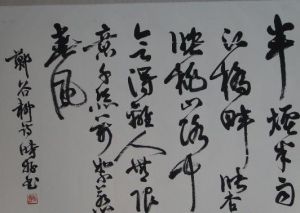 半煙半雨
江橋畔映杏
映桃山路中
會得離人無限
意千絲萬絮惹
春風
鄭谷柳詩